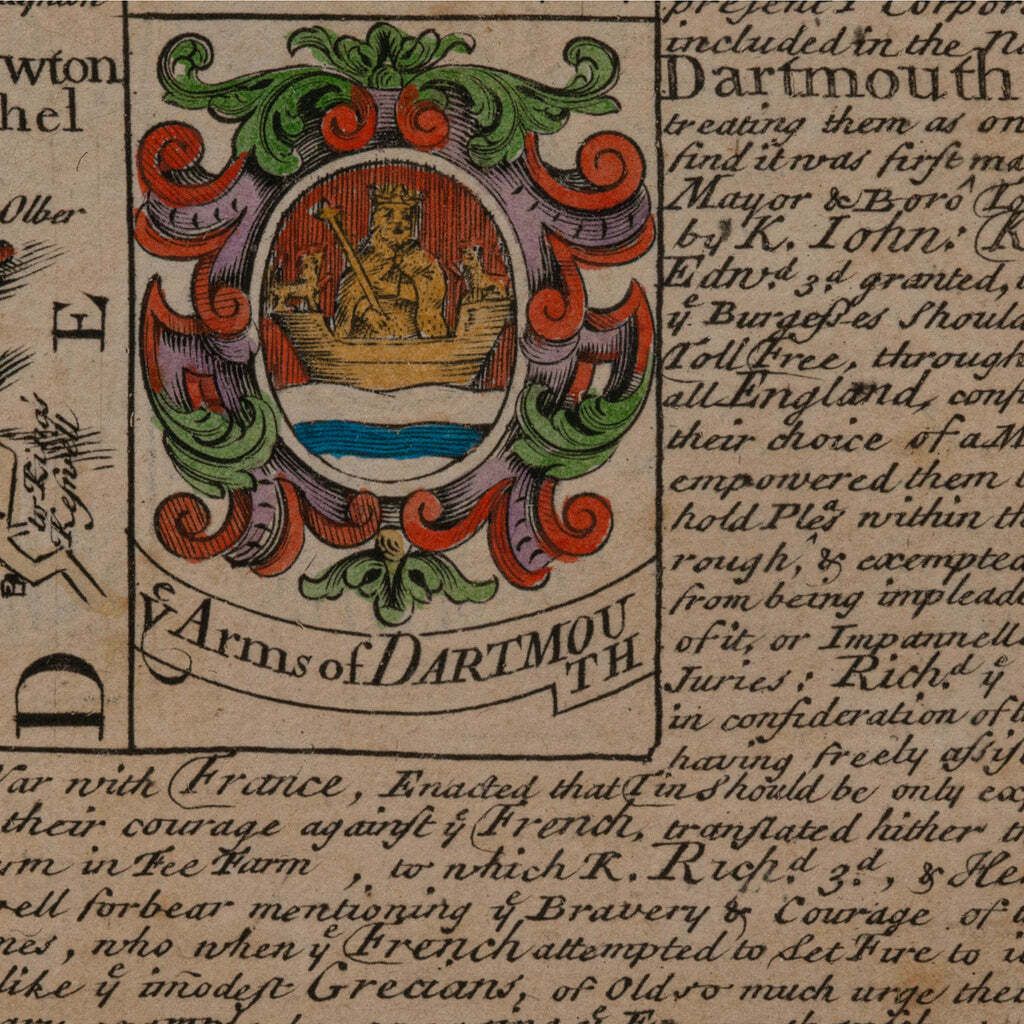 wton
hel
Olber
E
to Kings
Kerswell
D
yᵉ Arms of DARTMOU
TH
present 1 Corpor
included in the Na
Dartmouth
treating them as on
find it was first ma
Mayor & Boro^
by K. Iohn: K
Edwᵈ 3ᵈ granted,
yᵉ Burgeſses Should
Toll Free, through
all England, conf
their choice of a M
empowered them
hold Pleᵃs within th
rough, & exempted
from being impleade
of it, or Impannell
Juries: Richᵈ yᵉ
in conſideration of
having freely aſsiſ
War with France, Enacted that Tin Should be only exp
their courage againſt yᵉ French, tranſlated hither th
in Fee Farm, to which K. Richᵈ 3ᵈ, & He
well forbear mentioning yᵉ Bravery & Courage of
mes, who when yᵉ French attempted to Set Fire to
like yᵉ im̄odeſt Grecians, of Old so much urge thei